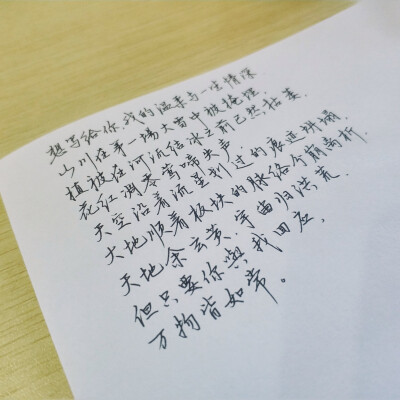 想写给你,我的温柔与一生情深.
山川在第一場大雪中被掩埋.
植被在河流结冰之前已然枯萎.
花红凋零莺啼失声.
天空沿着流星划过的痕迹坍塌.
大地顺着板块的脉络分崩离析.
天地余玄黄.宇宙归洪荒.
但只要你與我回应,
万物皆如常。